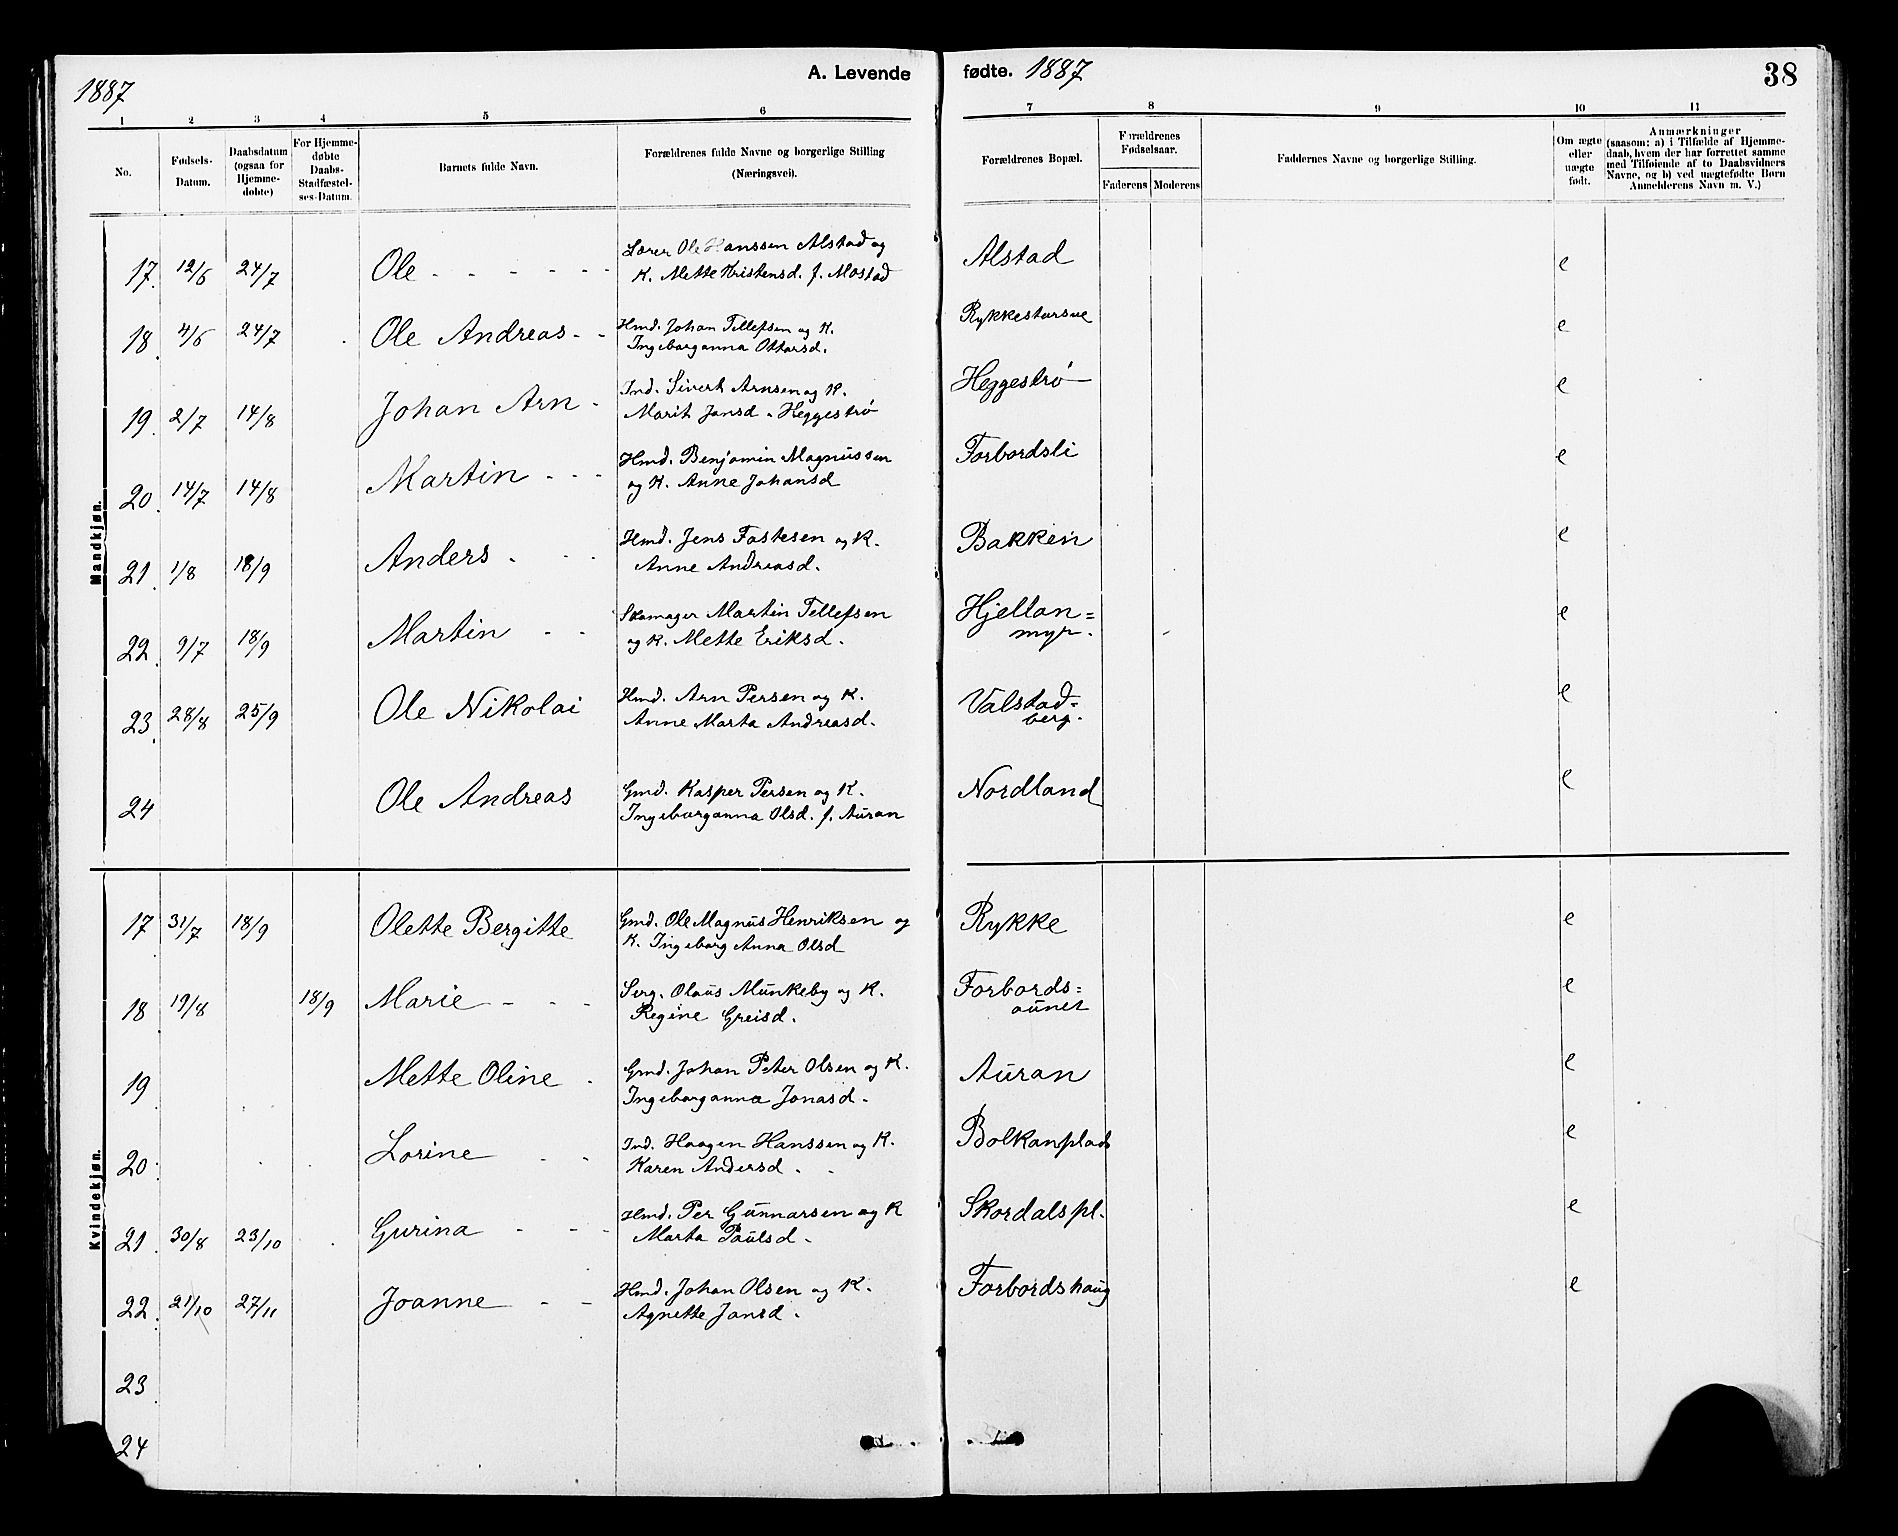 1887 A. Levende fødte. 1887 38
1 2 3 4 5 6 7 8 9 10 11
No.
Fødsels-
Datum.
Daabsdatum
(ogsaa for
Hjemme-
døbte)
For Hjemme-
døbte
Daabs-
Stadfæstel-
ses-Datum.
Barnets fulde Navn.
Forældrenes fulde Navne og borgerlige Stilling
(Næringsvei).
Forældrenes Bopæl.
Forældrenes
Fødselsaar.
Faderens Moderens
Faddernes Navne og borgerlige Stilling.
Om ægte
eller
uægte
født.
Anmærkninger
(saasom: a) i Tilfælde af Hjemme-
daab, hvem der har forrettet samme
med Tilføiende af to Daabsvidners
Navne, og b) ved uægtefødte Børn
Anmelderens Navn m. V.)
Mandkjøn.
17. 12/6 24/7 Ole - - - - - - Lærer Ole Hanssen Alstad og Alstad e
K. Mette Kristensd. f. Mostad
18. 4/6 24/7 Ole Andreas - - Hmd. Johan Tellefsen og K. Rykkestarsve e
Ingeborganna Ottarsd.
19. 2/7 14/8 Johan Arn - Ind. Sivert Arnsen og K. Heggestrø e
Marit Jansd. Heggestrø
20. 14/7 14/8 Martin - - - Hmd. Benjamin Magnussen Forbordsli e
og K. Anne Johansd
21. 1/8 18/9 Anders - - - Hmd. Jens Fastesen og K. Bakken e
Anne Andreasd.
22. 9/7 18/9 Martin - - Skomager Martin Tellefsen Hjellan= e
og K. Mette Eriksd. myr.
23. 28/8 25/9 Ole Nikolai Hmd. Arn Persen og K. Valstad= e
Anne Marta Andreasd. berg.
24 Ole Andreas Gmd. Kasper Persen og K. Nordland e
Ingeborganna Olsd. f. Auran
Kvindekjøn.
17 31/7 18/9 Olette Bergitte Gmd. Ole Magnus Henriksen og Rykke e
K. Ingeborg Anna Olsd
18 19/8 18/9 Marie - - - Serg. Olaus Munkeby og K. Forbords= e
Regine Greisd. aunet
19 Mette Oline - Gmd. Johan Peter Olsen og K. Auran e
Ingeborganna Jonasd.
20. Lorine - - Ind. Haagen Hanssen og K. Bolkanplads e
Karen Andersd.
21. 30/8 23/10 Gurina - - - Hmd. Per Gunnarsen og K Skordalspl. e
Marta Paulsd.
22. 21/10 27/11 Joanne - - Hmd. Johan Olsen og K. Forbordshaug e
Agnette Jansd.
23
24